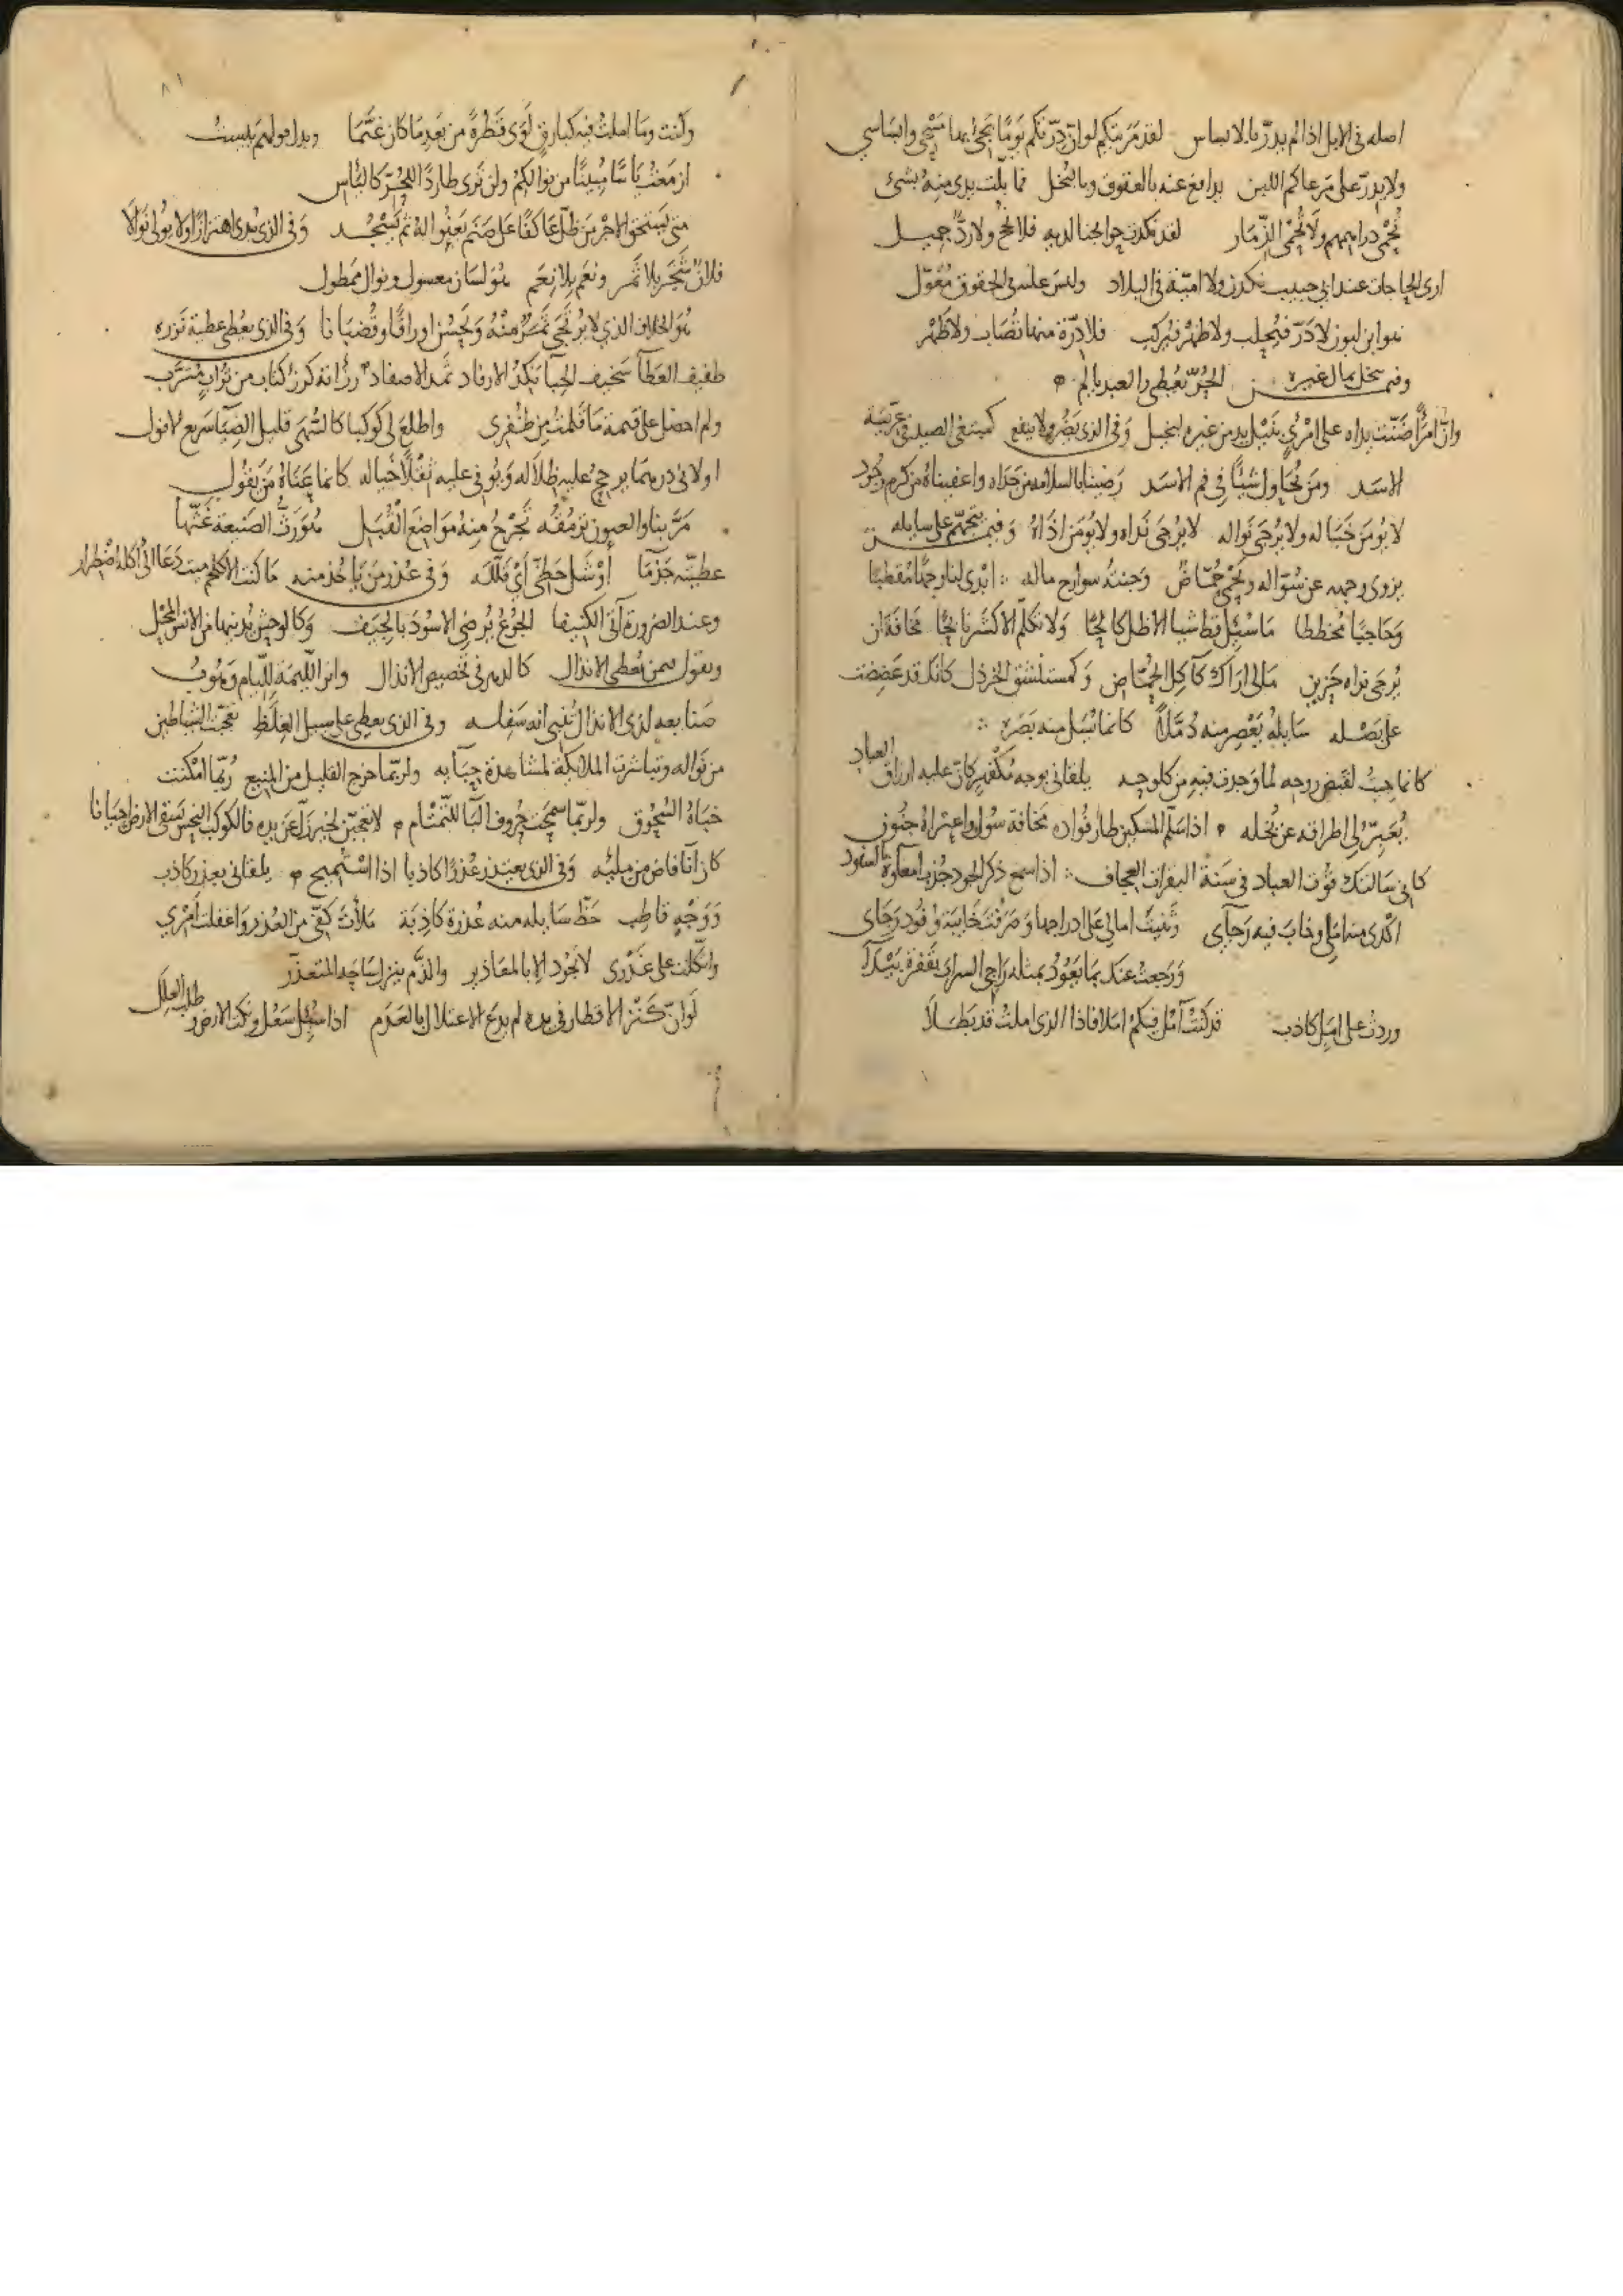 اصله فى الابل اذا لم يدرّ بالابساس لقد مَرَيتكم لوانّ دِرّتكم يَومًا يجئ بها مَسْحِى وابسَاسي
ولا يدرّ على مَرعاكم اللبن يدافع عنه بالعقوق وبالبخل فما بلّت يدى منه بشئ
تُحْمى دراهمهم ولا تُحْمى الذّمَار لقد نكدت حوايجنا لديه فلا نجح ولا ردّ جميل
ارى الحاجات عند ابي حبيب نكدن ولا اميّة فى البلاد وليس على فى الحقوق مُعَوّل
هو ابن لبون لا دَرّ فيُحلب ولا ظهرٌ فيركب فلا دِرّة منها تُصَاب ولا ظَهْر
وفيمن يبخل بمال غيره الحُرّ يُعْطى والعبد يالم
وانّ امرًأ ضَنّت يداه على امْرئٍ بنَيْل يدٍ من غيره لبخيل وَفى الذى يَضُرّ ولا ينفع كمبتغى الصيد فى عرّيسَة
الاسَد ومَن يُحَاول شيئًا فى فم الاسَد رَضينا بالسلامه من جَداه واعفيناهُ من كرم وجُود
لا يُومَن خَبَاله ولا يُرجَى نَواله لا يُرجَى نَداه ولا يُومَن اذَاهُ وَفيمن يتجهّم على سايله
يزوى وجهه عن سُؤاله ابدى لنا وجهًا مُقطبا
وَحاجبًا مُخططا مَا سُئِل قط شيا الا ظل كالحًا وَلا تكلّم الا كشّر نابحًا مخافة ان
يُرجَى نداه حَزين مَالى اراك كآكِل الحُمّاض وَكمستنشق الخردل كانك قد عَضِضت
على بَصَله سَايلهُ يَعْصر منه دُمّلاً كانما يُسَل منه بَصَرَه
كانما جيتُ لقَبض روحه لما وَجدت فيه من كلوحه يلقانى بوجه مُكْفَهِرّ كانّ عليه ارزاق العباد
يُعَبّرُ لى اطراقه عن بُخله اذا سَلّم المسكين طار فُواده مخافة سُول واعتراهُ جُنون
كانى سَالتك قُوت العباد فى سَنة البقرات العجاف اذا سمع ذكر الجود
اكْدى منه امَلى وخابَ فيه رَجاي وثَنيتُ امالى عَلى ادراجها وَصَرفْت خَايبَة وفُود رَجَاى
وَرجعتُ عنك بمَا يَعُودُ بمثله رَاجى السراب بقَفرة بَيْدآ
وردتُ على امَل كاذب قد كنتُ آمُل فيكمُ امَلا فاذا الذى املتُ قد بَطَلاَ
وكنت ومَا املتُ فيه كبارقٍ لَوَى قَطرَهُ من بَعدِ مَا كان غَيّمَا
ازمَعْتُ يَاسًا مُبينًا من نوالكمُ ولن تَرى طاردًا للحُرّ كاليَاس
متى يَستحقّ الاجْر مَن ظلّ عَاكفًا على صَنم يَعنُوا لهُ ثم يَسْجُد وَفى الذى يُبدى اهتزازًا ولا يُولى نَوالا
فلانٌ شَجَر بلا ثَمَر ونعَم بلا نعَم هُوَ لسَان معسول ونوال ممطول
هُوَ الخلاف الذي لا يُرتَجى ثَمَرٌ منهُ وَيَحْسُن اوراقًا وقُضبَانا وَفى الذى يُعْطى عطية نَزره
طفيف العَطآ سَخيف الحِبآ نكدُ الارفاد ثَمَد الاصفاد
ولم احصل على قسمة مَا قَلمتُ مِن ظُفرى واطلعَ لى كَوكبا كالسُّهَى قليل الضِيَآ سَريع الافول
اولانى درهمًا يرجحُ عليه ظلاله وَيُوفى عليه ثِقْلاً خَياله كانما عَنَاهُ مَن يَقُول
مَرّ بنا والعيون تَرمُقُه تَجْرحُ مِنهُ مَواضعَ القُبَل هُوَ رَثُّ الصَنيعة غَثّها
عطيّته جَذمآ وَفى عُذر مَن يَاخُذ منه مَا كنت الا كلحم ميت دَعَا الى اكله اضْطرار
وعند الضرورة آتى الكنيفا الجُوعُ يُرضى الاسُودَ بالجِيَف وَكالوحش يُدنيها من الانس المَحْل
ويقول فيمن يُعطى الانذال كالدهر فى تخصيص الانذال وابن اللئيمة لِلّيام وَهُوبُ
صَنايعه لدى الانذال تُنبى انه سَفِله وفى الذى يعطى على سبيل الغلَط تعجّبت الشياطين
من نَواله وتباشرت الملايكة لمشاهدة حِبَآيه ولربّما خرج القليل من المنيع رُبّما امْكنت
ولربّما سمحَت حُروف البَآ للتّمْتَام لا تعجبَنّ لخيرٍ زَلّ عَن يده فالكوكب النحس يَسقى الارض احيَانا
كانَ آنًا فاضَ من مليّه وَفى الذى يعتذر عُذرًا كاذبا اذا اسْتُميح يلقانى بعذر كاذب
وَوَجْهٍ قاطِب حَظّ سَايله منه عُذرة كاذِبَة مَلأتَ كفّى من العُذر وَاغفلت اَمْرِي
واتّكلت على عُذْرى لا تَجُود الا بالمعَاذير والذّم ينزل سَاحَة المتعذّر
لَوانّ كَنْز الاقطار فى يده لم يدعَ الاعتلال بالعَدَم اذا سُيل سَعَل ونكت الارض وطلب العِلل